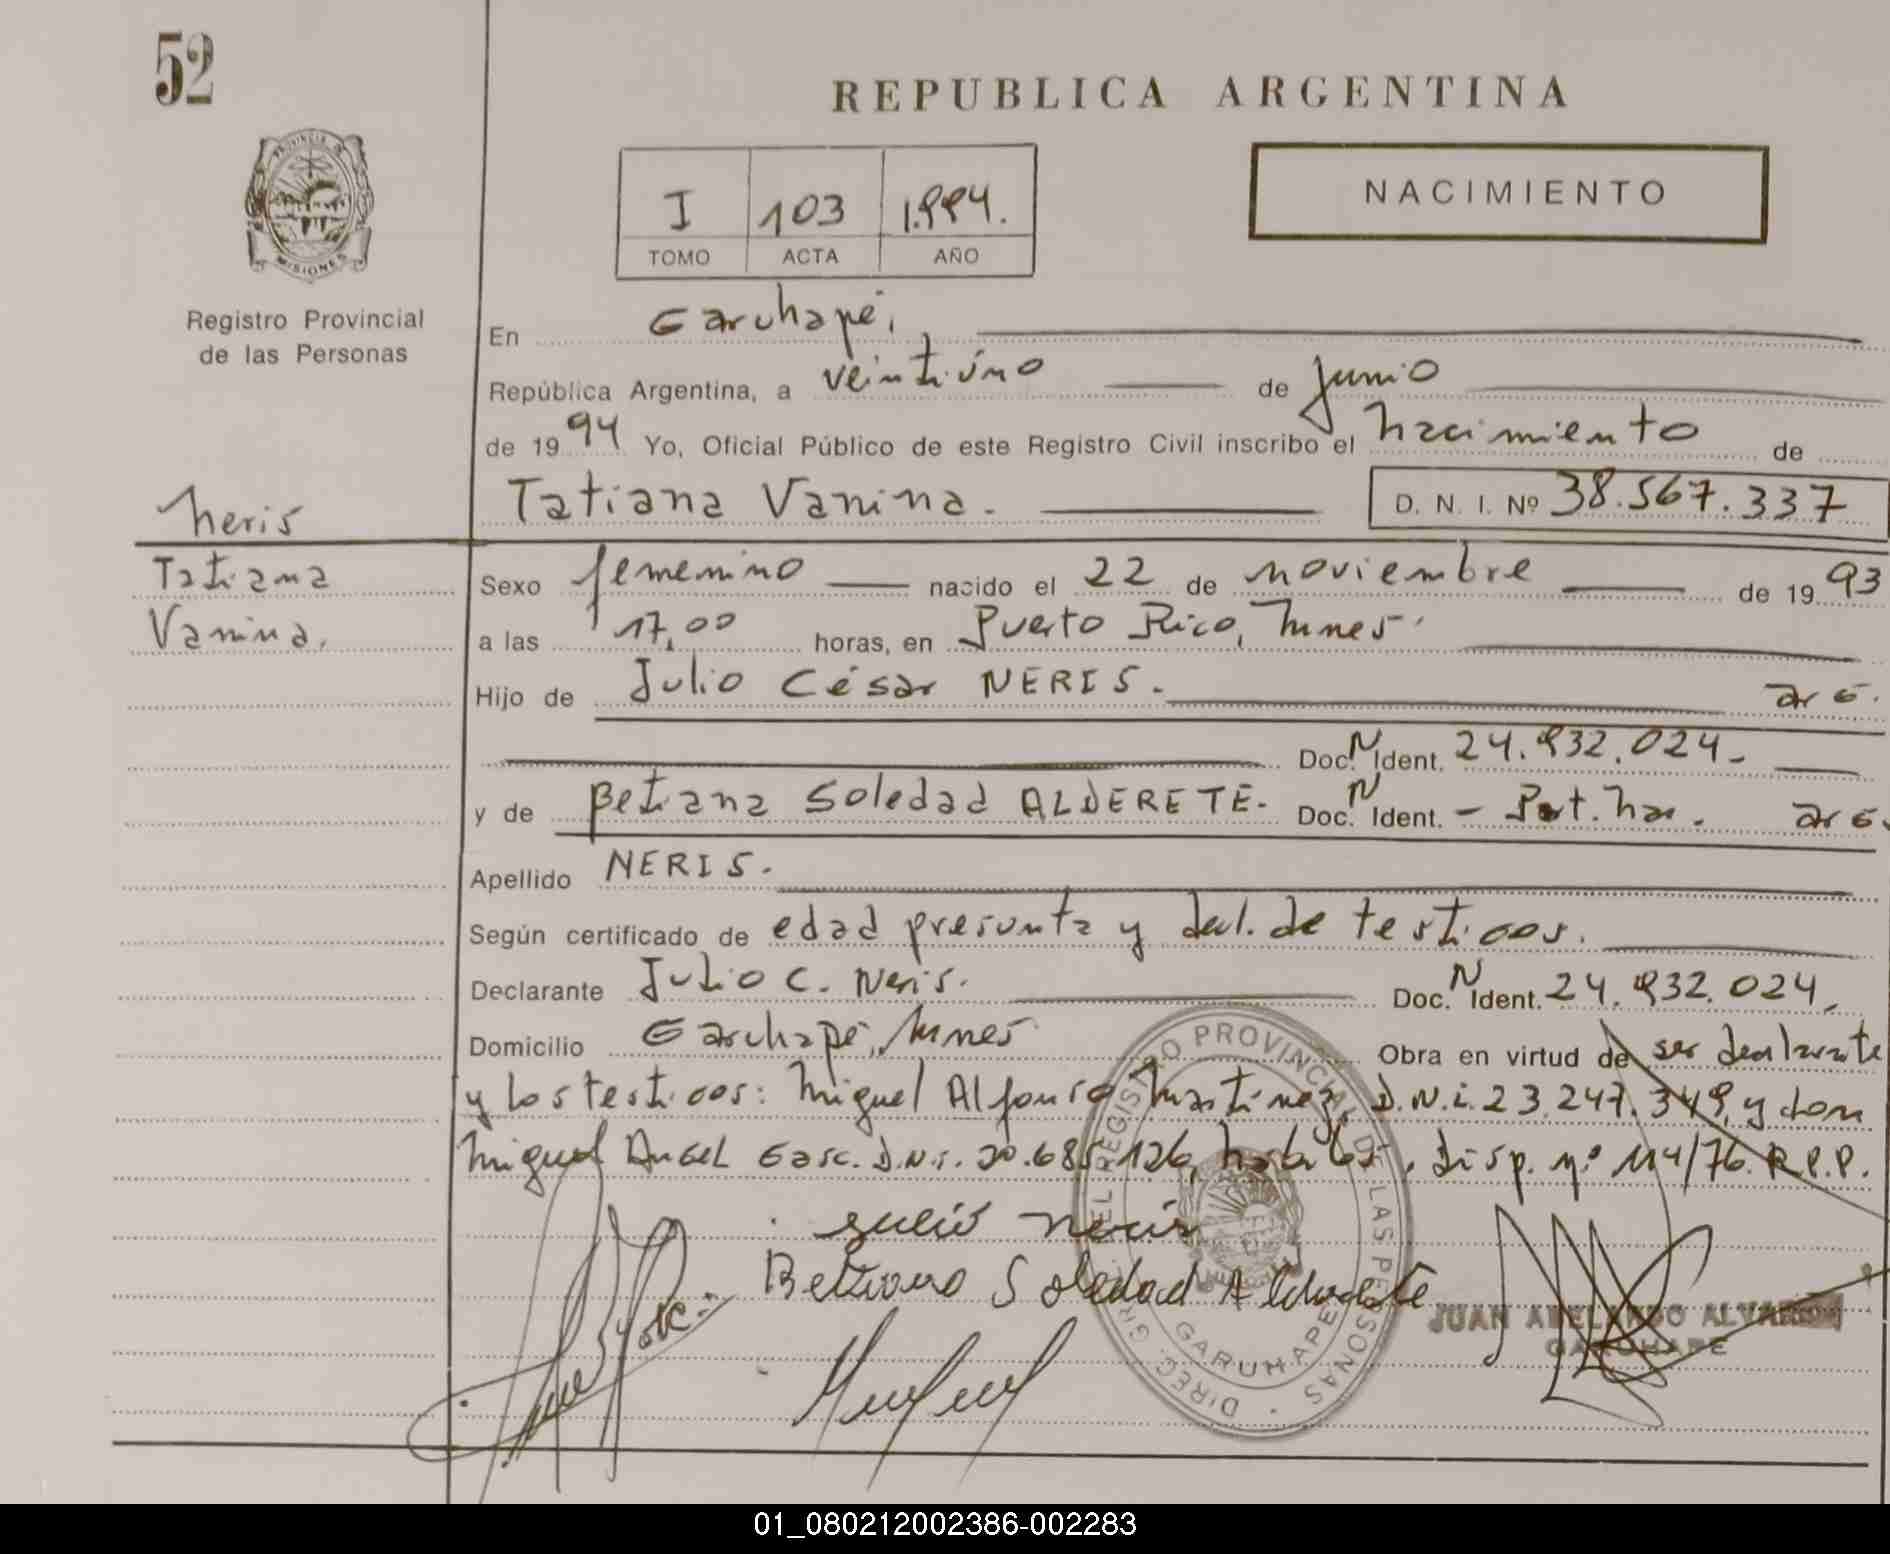 52
REPUBLICA ARGENTINA
PROVINCIA DE
MISIONES
NACIMIENTO
I 103 1.994.
TOMO ACTA AÑO
Registro Provincial
de las Personas
En Garuhapé,
República Argentina, a veintiúno de Junio
de 1994 Yo, Oficial Público de este Registro Civil inscribo el nacimiento de
Tatiana Vanina. D. N. I. Nº 38.567.337
Neris
Tatiana
Vanina.
Sexo femenino nacido el 22 de noviembre de 1993
a las 17,00 horas, en Puerto Rico, Mnes.
Hijo de Julio César NERIS. arg.
Doc. N Ident. 24.932.024-
y de Betiana Soledad ALDERETE. Doc. N Ident. - Part. Nac. arg.
Apellido NERIS.
Según certificado de edad presunta y decl. de testigos.
Declarante Julio C. Neris. Doc. N Ident. 24.932.024,
Domicilio Garuhapé, Mnes Obra en virtud de ser declarante
y los testigos: Miguel Alfonso Martinez, D.N.i. 23.247.349, y don
Miguel Angel Gasc. D.N.i. 20.685.126, habiles, disp. nº 114/76. R.P.P.
Julio Neris
Betiana Soledad Alderete
DIREC. GRAL. DEL REGISTRO PROVINCIAL DE LAS PERSONAS
GARUHAPE
JUAN ABELARDO ALVAREZ
GARUHAPE
01_080212002386-002283